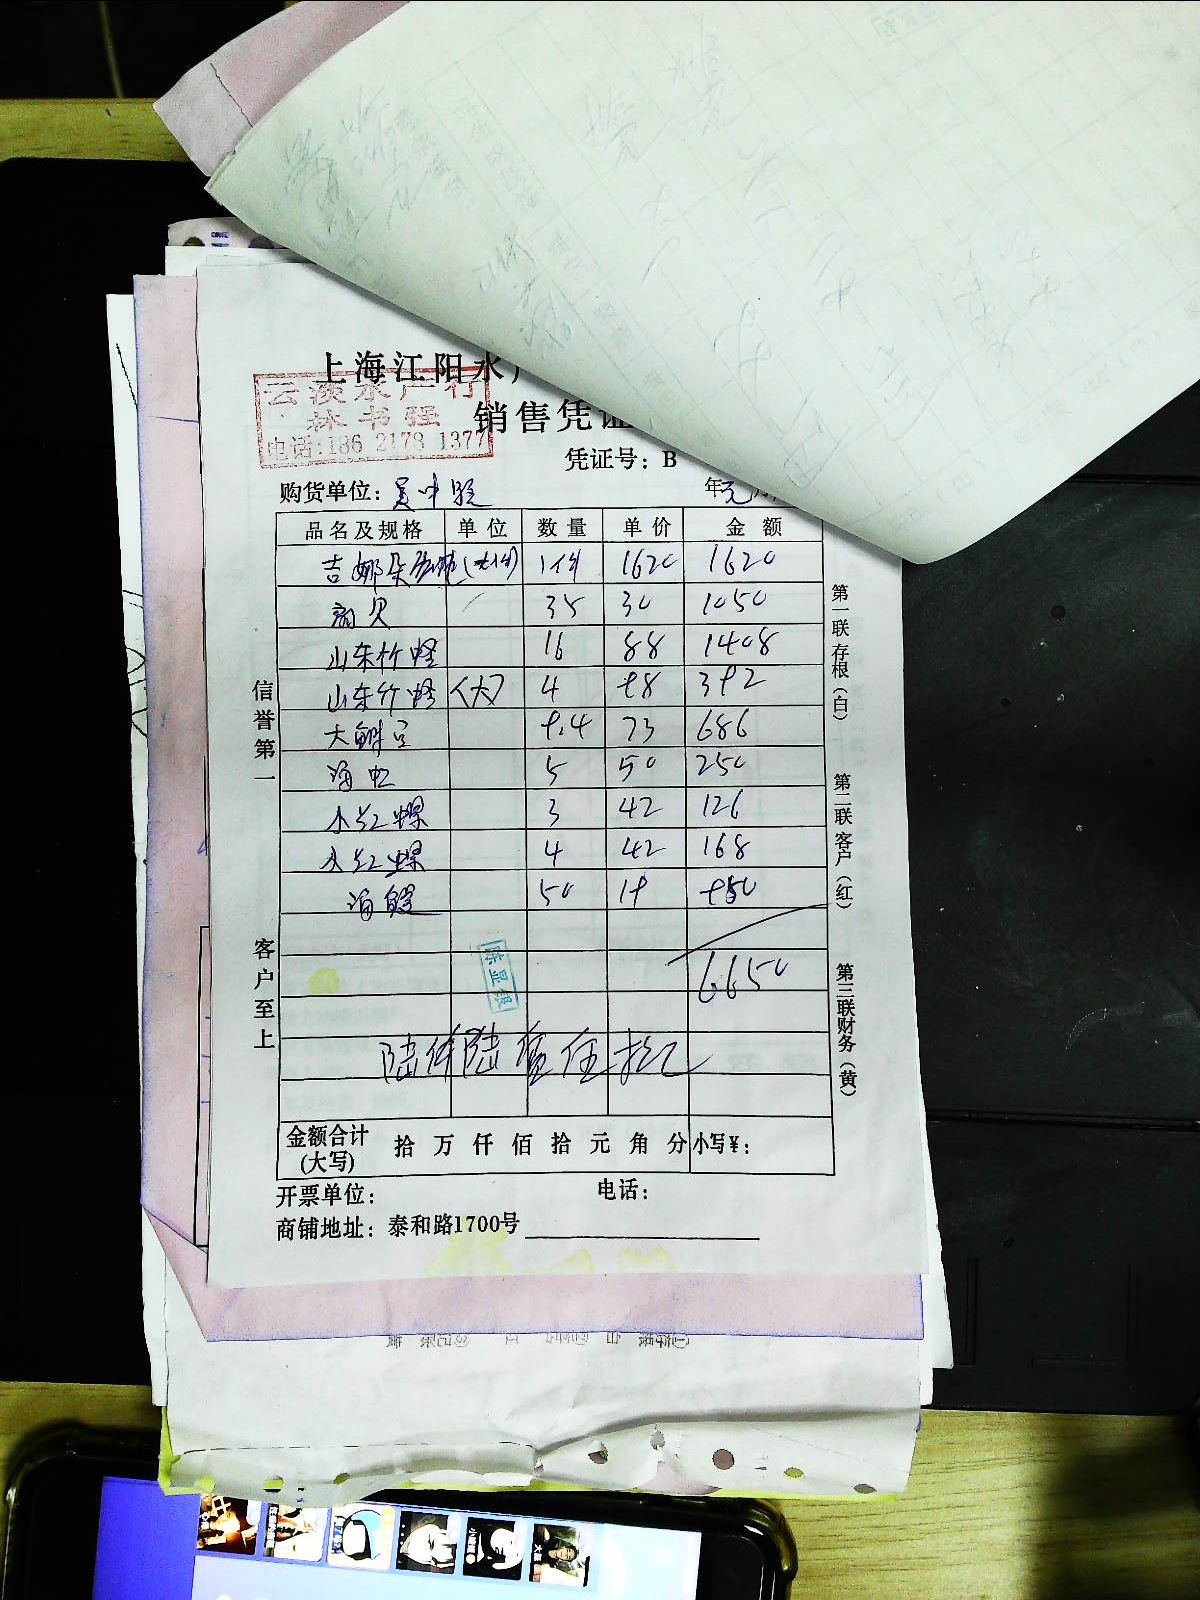 上海江阳水产
云淡水产行
林书强
电话:186 2178 1377
销售凭证
凭证号：B
购货单位：
年
品名及规格 单位 数量 单价 金额
吉娜朵 1件 1620 1620
扇贝 35 30 1050
山东竹蛏 16 88 1408
山东竹蛏 (大) 4 98 392
大鲜豆 9.4 73 686
海虹 5 50 250
小红螺 3 42 126
大红螺 4 42 168
海 50 19 950
6650
陈显银
陆仟陆佰伍拾元
金额合计(大写) 拾 万 仟 佰 拾 元 角 分 小写¥：
开票单位： 电话：
商铺地址：泰和路1700号
信誉第一
客户至上
第一联 存根(白)
第二联 客户(红)
第三联财务(黄)